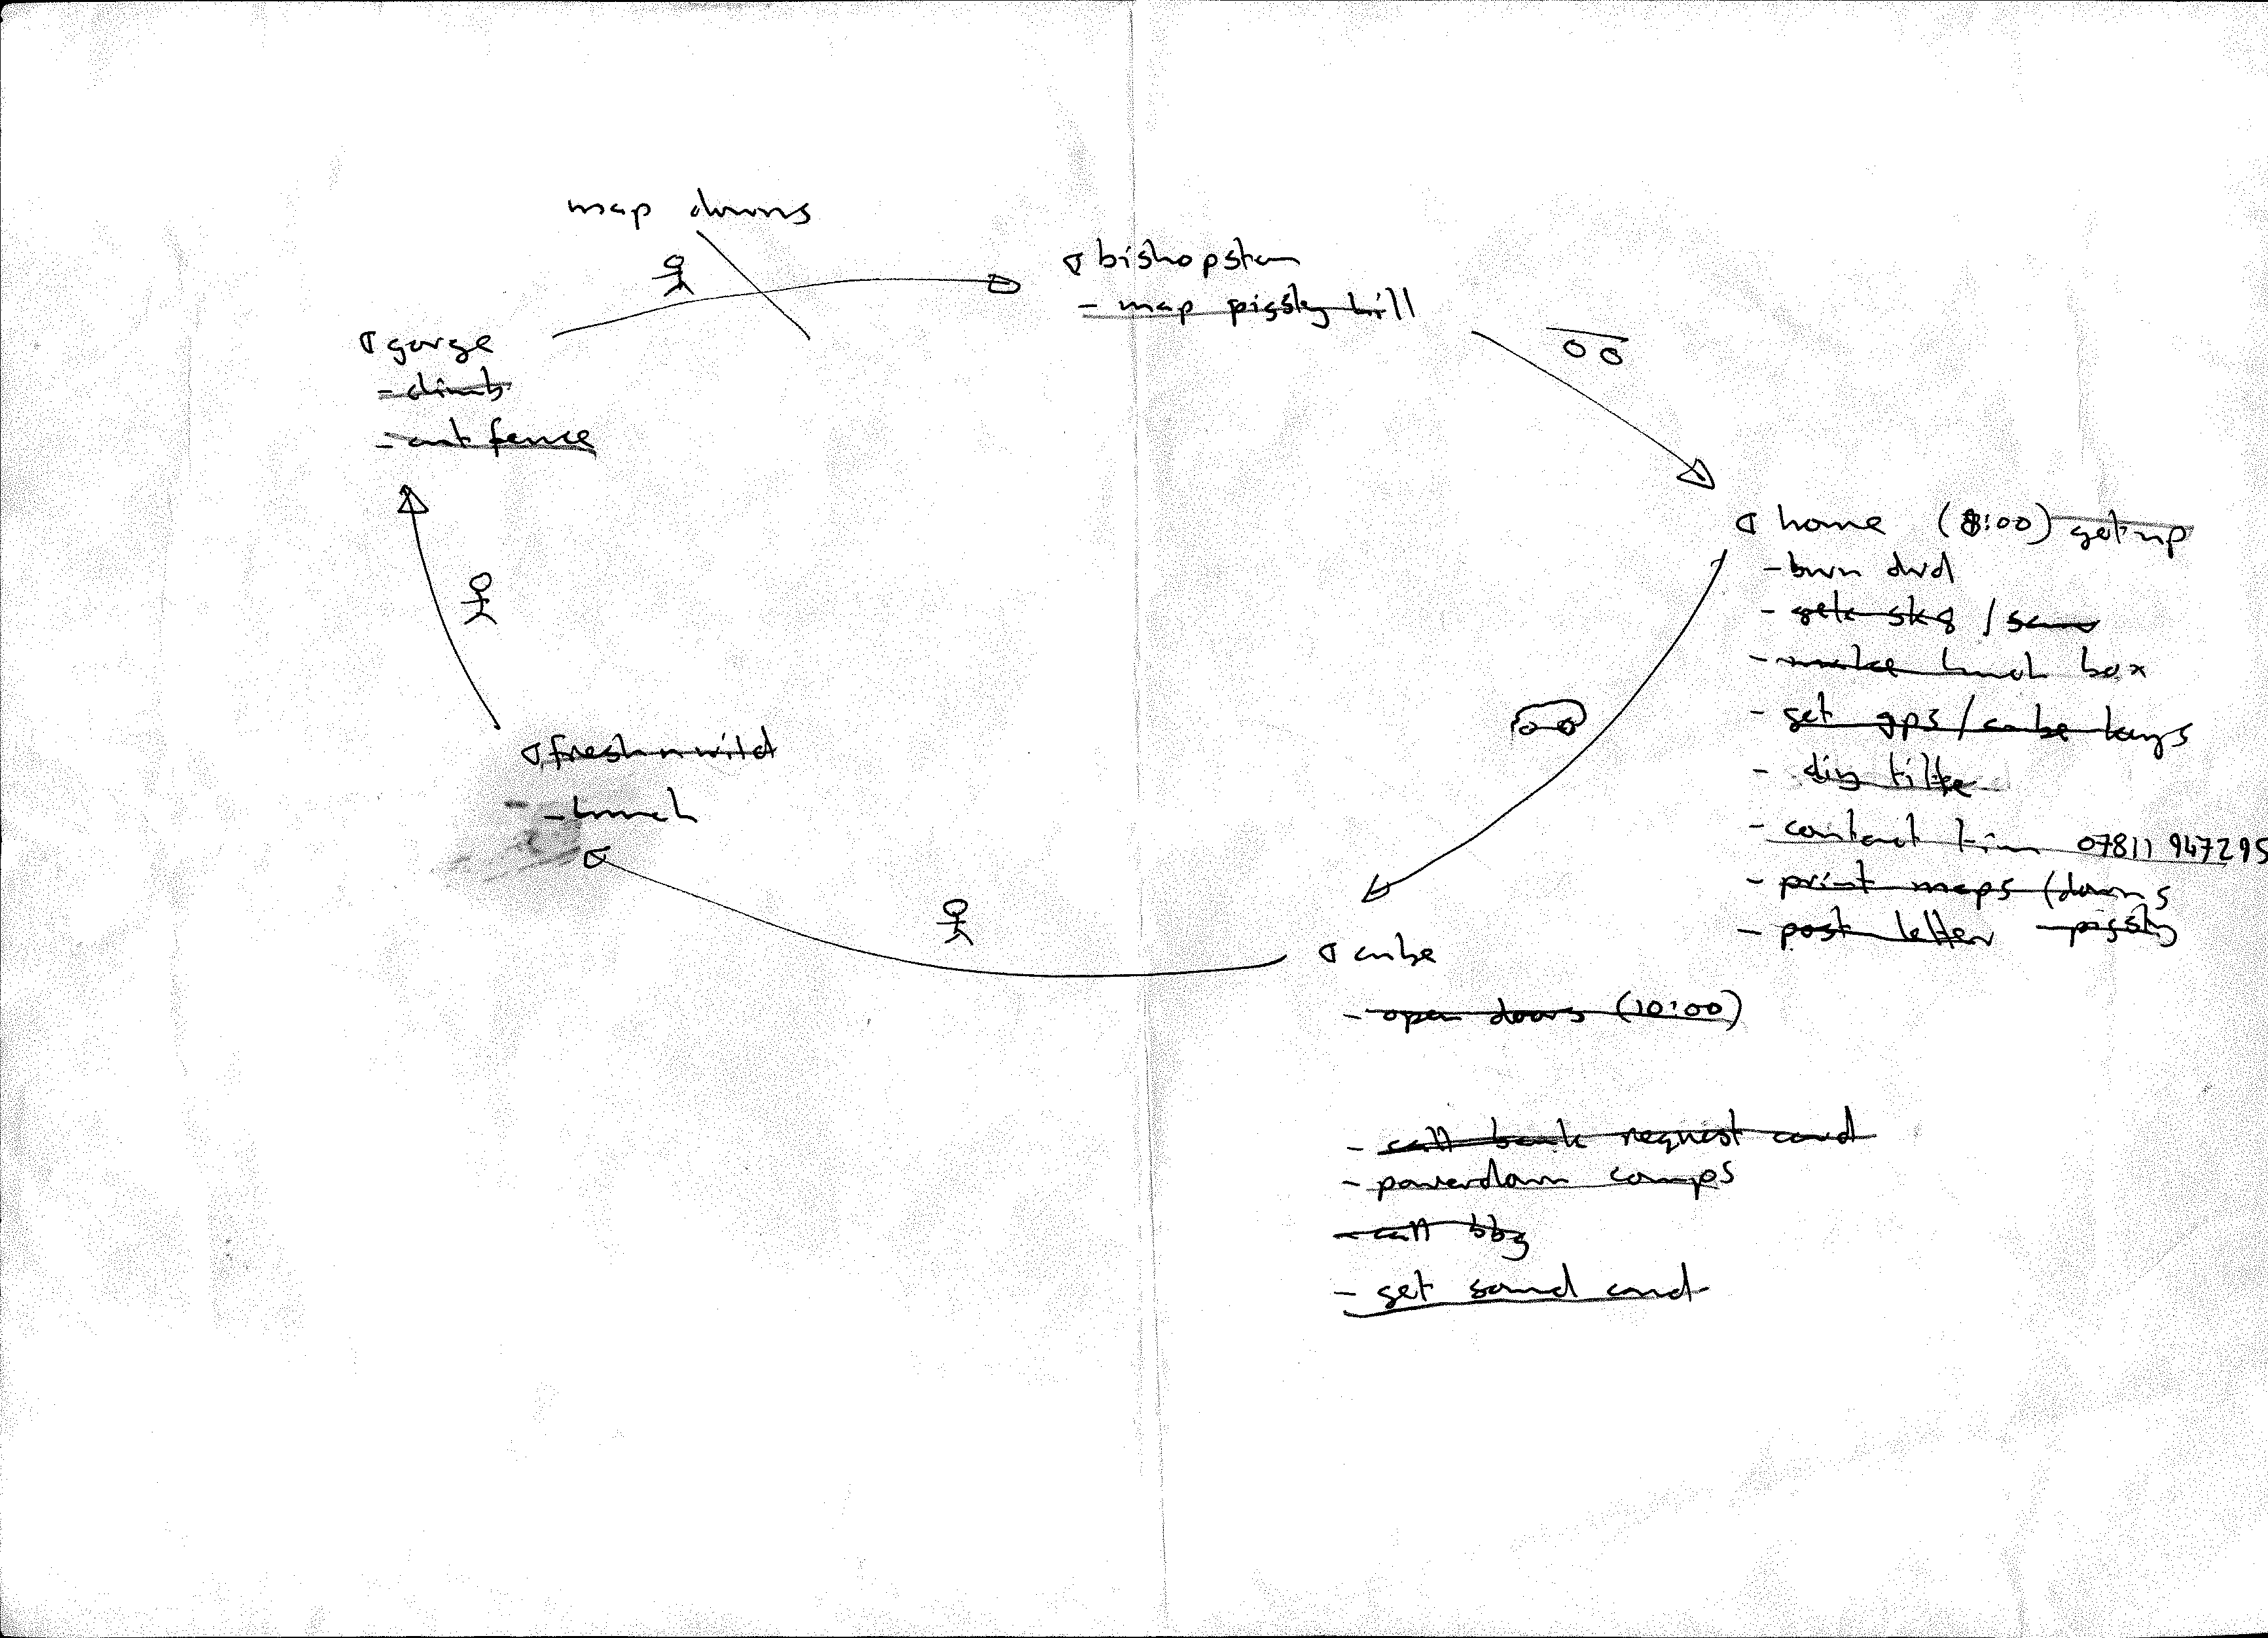 map downs
bishopston
- map pigsty hill
gorge
- climb
- cut fence
home (8:00) get up
- burn dvd
- / 
- make lunch box
- get gps / cube keys
- diy filter
- contact tim 07811 947295
- print maps (downs
- post letter - pigsty
fresh n wild
- lunch
cube
- open doors (10:00)
- call bank request card
- powerdown comps
- call bbg
- get sound card